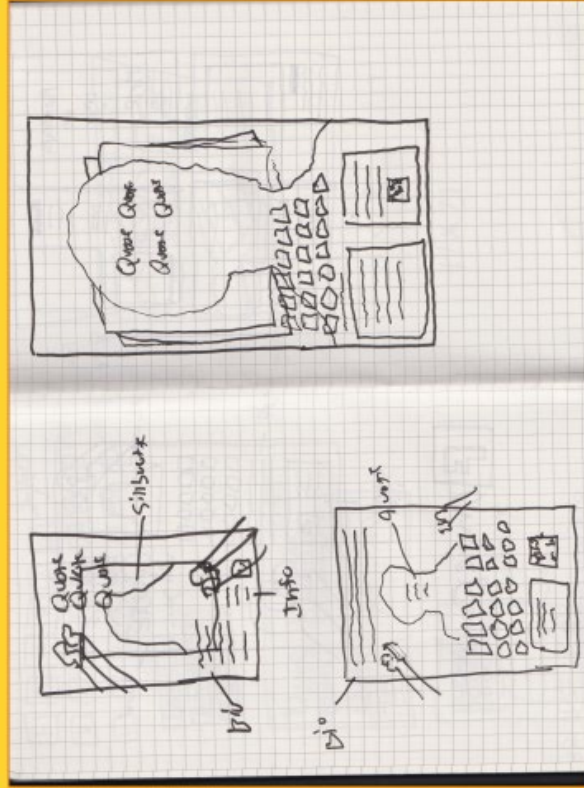 Quote Quote
Quote Quote
Quote
Quote
Quote
Sillhuete
Bio
Info
Bio
quote